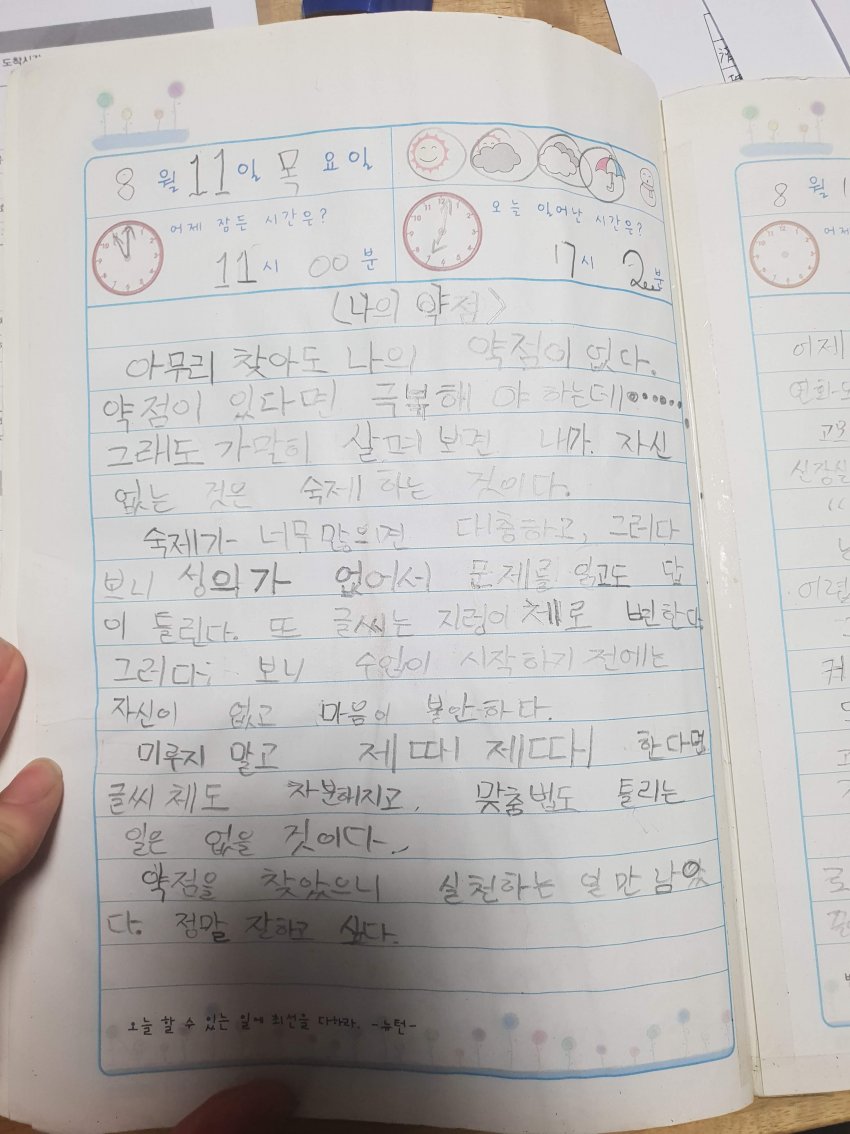 도착시간
8월 11일 목요일
어제 잠든 시간은?
오늘 일어난 시간은?
11시 00분
17시 2분
<나의 약점>
아무리 찾아도 나의 약점이 없다.
약점이 있다면 극복해 야 하는데......
그래도 가만히 살펴 보면 내가 자신
없는 것은 숙제 하는 것이다.
숙제가 너무 많으면 대충하고, 그러다
보니 성의가 없어서 문제를 읽고도 답
이 틀린다. 또 글씨는 지렁이 체로 변한다.
그러다 보니 수업이 시작하기 전에는
자신이 없고 마음이 불안하다.
미루지 말고 제때 제때 한다면
글씨 체도 차분해지고, 맞춤법도 틀리는
일은 없을 것이다.
약점을 찾았으니 실천하는 일만 남았
다. 정말 잘하고 싶다.
오늘 할 수 있는 일에 최선을 다하라. -뉴턴-
8월 1
어제
어제
신장실
어렵